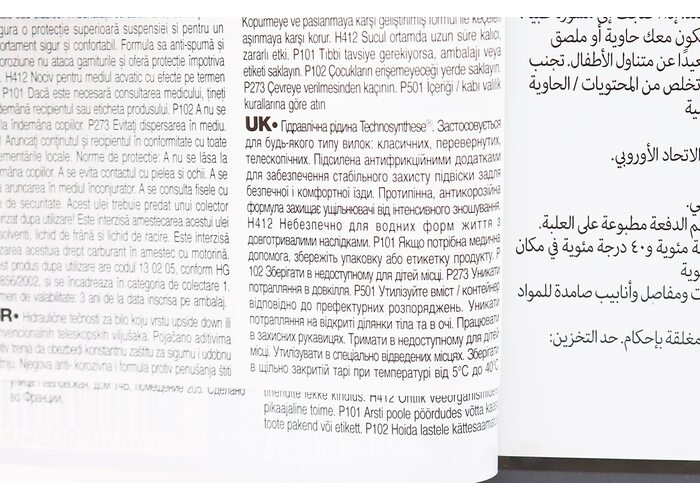 gura o protecție superioară suspensiei si pentru un
ortament sigur și confortabil. Formula sa anti-spumă și
oroziune nu ataca garniturile și oferă protecție împotriva
. H412 Nociv pentru mediul acvatic cu efecte pe termen
P101 Dacă este necesară consultarea medicului, țineți
demână recipientul sau eticheta produsului. P102 A nu se
la îndemâna copiilor. P273 Evitați dispersarea în mediu.
Aruncați conținutul și recipientul în conformitate cu toate
ementările locale. Norme de protecție: A nu se lăsa la
mâna copiilor. A se evita contactul cu pielea si ochii. A se
aruncarea în mediul înconjurator. A se consulta fisele cu
de securitate. Acest ulei trebuie predat unui colector
nzat dupa utilizare! Este interzisă amestecarea acestui ulei
solventi, lichid de frână si lichid de racire. Este interzisă
zarea acestuia drept carburant în amestec cu motorină.
est produs dupa utilizare are codul 13 02 05, conform HG
856/2002, si se încadreaza în categoria de colectare 1.
men de valabilitate: 3 ani de la data inscrisa pe ambalaj.
R• Hidraulične tečnosti za bilo koju vrstu upside down ili
nvencionalnih teleskopskih viljušaka. Pojačano aditivima
otiv trenja da obezbedi konstantnu zaštitu za sigurnu i udobnu
žnju. Njegova anti-korozivna i formula protiv penušanja štiti
улица Павловская, дом 14Б, помещение 205. Сделано
во Франции.
Köpürmeye ve paslanmaya karşı geliştirilmiş formül ile keçeleri
aşınmaya karşı korur. H412 Sucul ortamda uzun süre kalıcı,
zararlı etki. P101 Tıbbi tavsiye gerekiyorsa, ambalajı veya
etiketi saklayın. P102 Çocukların erişemeyeceği yerde saklayın.
P273 Çevreye verilmesinden kaçının. P501 İçeriği / kabı valilik
kurallarına göre atın
UK• Гідравлічна рідина Technosynthese®. Застосовується
для будь-якого типу вилок: класичних, перевернутих,
телескопічних. Підсилена антифрикційними додатками
для забезпечення стабільного захисту підвіски задля
безпечної і комфортної їзди. Протипінна, антикорозійна
формула захищає ущільнювачі від інтенсивного зношування.
H412 Небезпечно для водних форм життя з
довготривалими наслідками. P101 Якщо потрібна медична
допомога, збережіть упаковку або етикетку продукту. P
102 Зберігати в недоступному для дітей місці. P273 Уникати
потрапляння в довкілля. P501 Утилізуйте вміст / контейнер
відповідно до префектурних розпоряджень. Уникати
потрапляння на відкриті ділянки тіла та в очі. Працювати
в захисних рукавицях. Тримати в недоступному для дітей
місці. Утилізувати в спеціально відведених місцях. Зберігати
в щільно закритій тарі при температурі від 5°C до 40°C
tihendite lekke kindlus. H412 Ohtlik veeorganismidele
pikaajaline toime. P101 Arsti poole pöördudes võtta kaasa
toote pakend või etikett. P102 Hoida lastele kättesaamatus
كون معك حاوية أو ملصق
عيدًا عن متناول الأطفال. تجنب
تخلص من المحتويات / الحاوية
الاتحاد الأوروبي.
م الدفعة مطبوعة على العلبة.
جة مئوية و٤٠ درجة مئوية في مكان
ت ومفاصل وأنابيب صامدة للمواد
مغلقة بإحكام. حد التخزين: